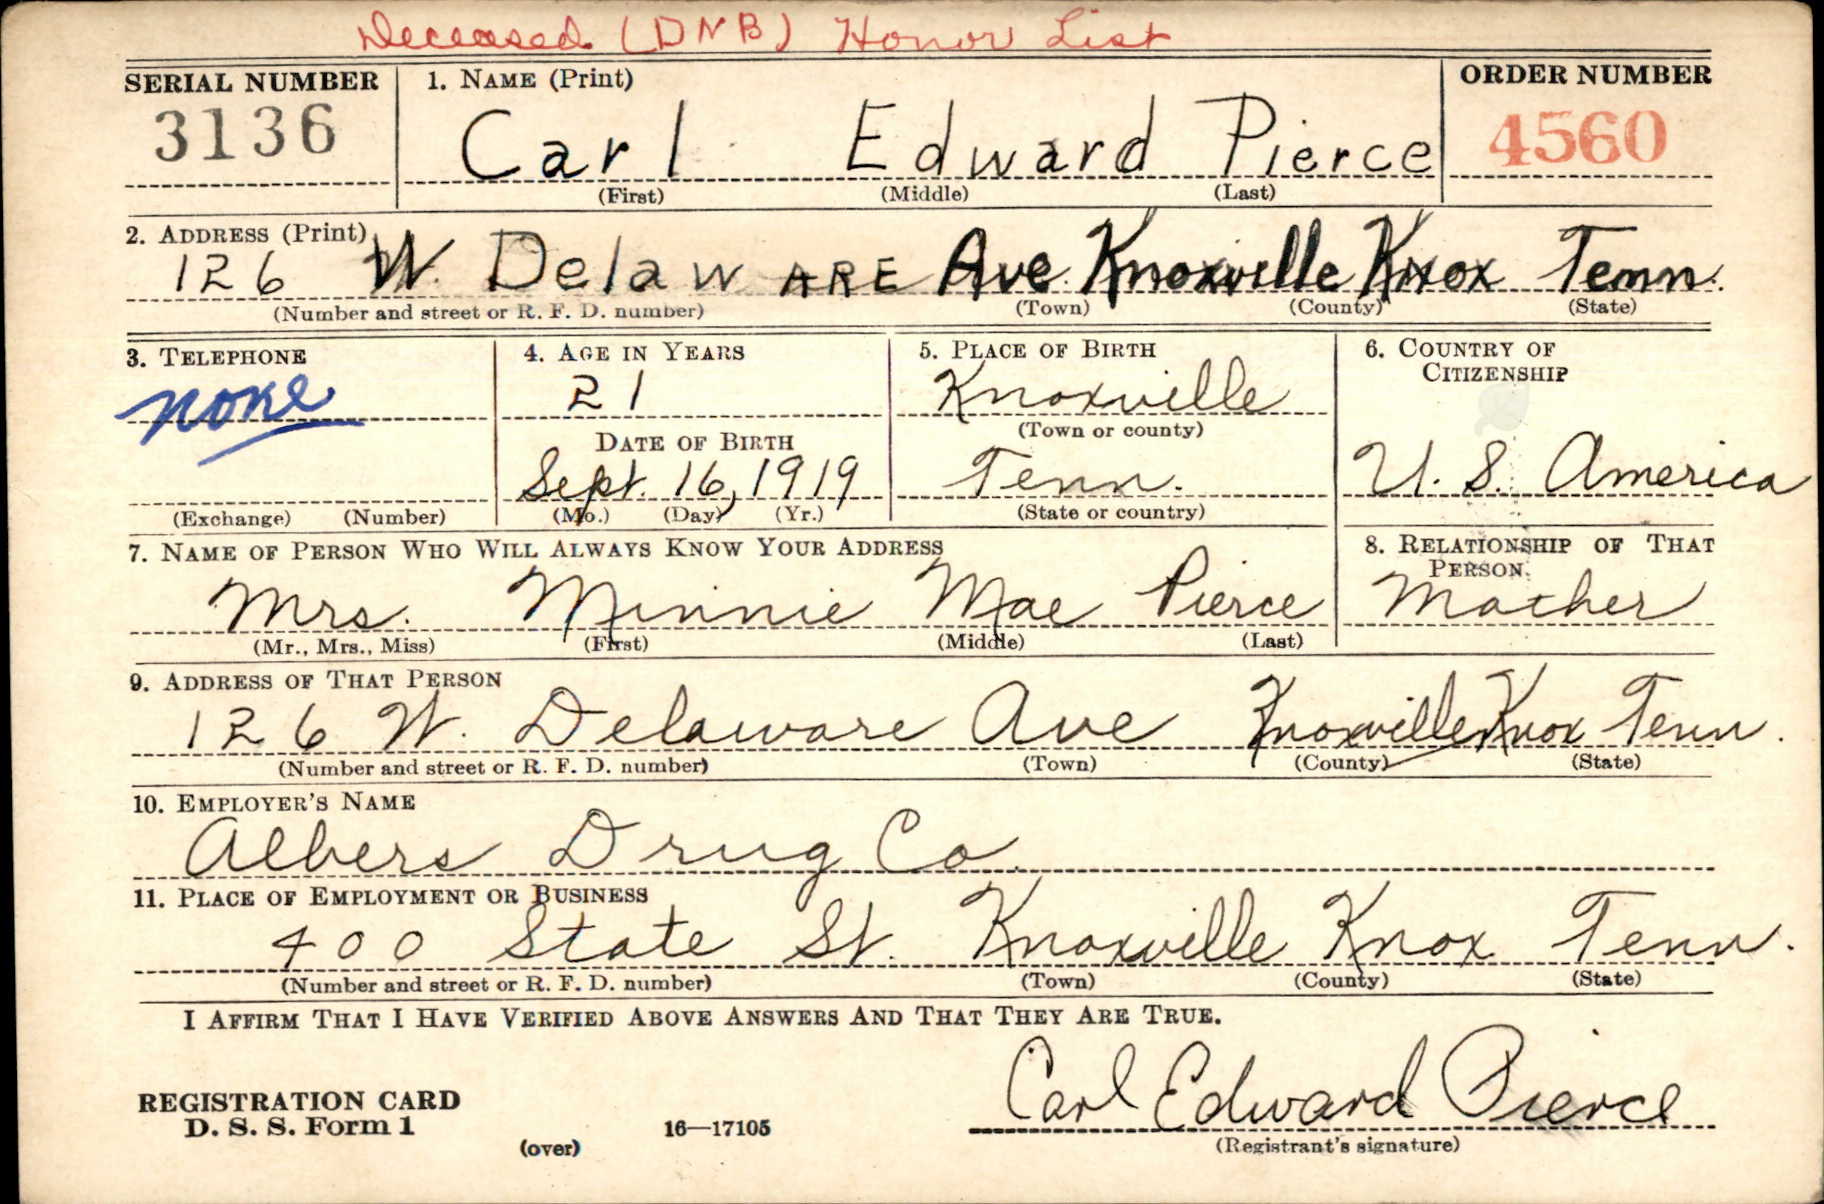 Deceased (DNB) Honor List
SERIAL NUMBER 1. NAME (Print) ORDER NUMBER
3136 Carl Edward Pierce 4560
(First) (Middle) (Last)
2. ADDRESS (Print)
126 W. DelawARE Ave Knoxville Knox Tenn.
(Number and street or R. F. D. number) (Town) (County) (State)
3. TELEPHONE 4. AGE IN YEARS 5. PLACE OF BIRTH 6. COUNTRY OF CITIZENSHIP
none 21 Knoxville
(Town or county)
DATE OF BIRTH
Sept. 16, 1919 Tenn. U. S. America
(Exchange) (Number) (Mo.) (Day) (Yr.) (State or country)
7. NAME OF PERSON WHO WILL ALWAYS KNOW YOUR ADDRESS 8. RELATIONSHIP OF THAT PERSON.
Mrs. Minnie Mae Pierce Mother
(Mr., Mrs., Miss) (First) (Middle) (Last)
9. ADDRESS OF THAT PERSON
126 W. Delaware Ave Knoxville Knox Tenn.
(Number and street or R. F. D. number) (Town) (County) (State)
10. EMPLOYER'S NAME
Albers Drug Co.
11. PLACE OF EMPLOYMENT OR BUSINESS
400 State St. Knoxville Knox Tenn.
(Number and street or R. F. D. number) (Town) (County) (State)
I AFFIRM THAT I HAVE VERIFIED ABOVE ANSWERS AND THAT THEY ARE TRUE.
Carl Edward Pierce
REGISTRATION CARD
D. S. S. Form 1 (over) 16—17105 (Registrant's signature)